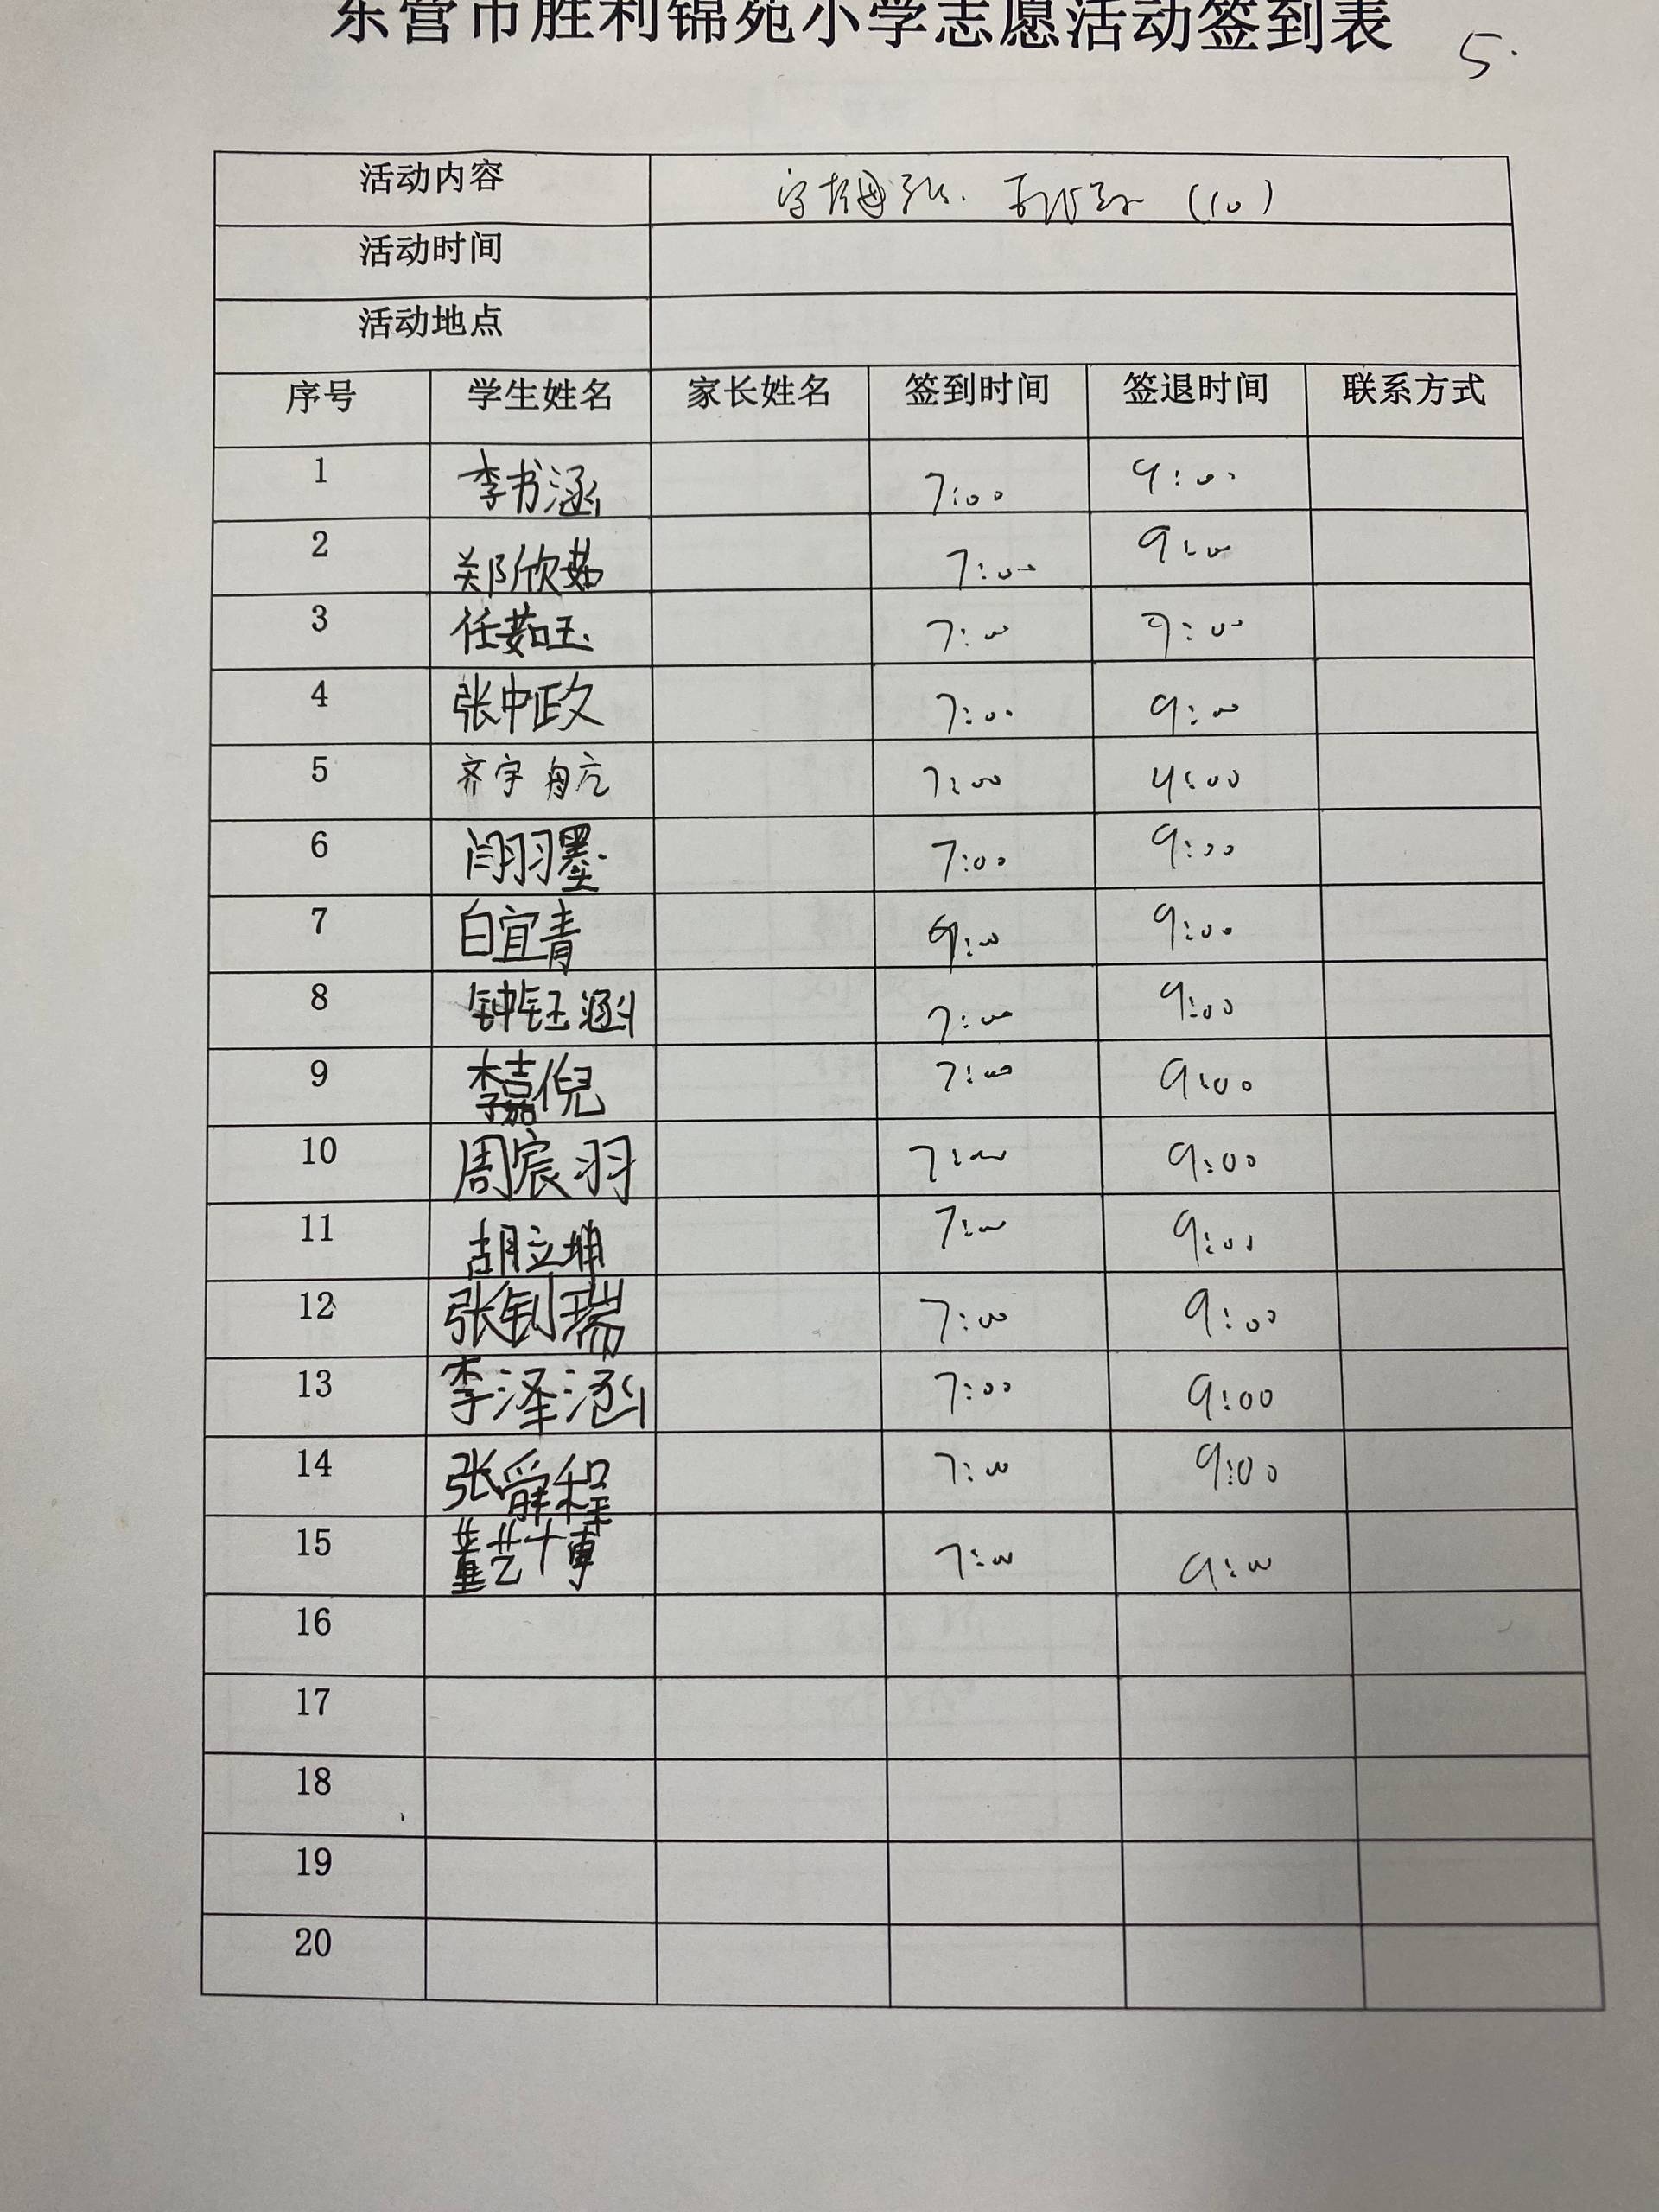 东营市胜利锦苑小学志愿活动签到表
5.
活动内容 (10)
活动时间
活动地点
序号 学生姓名 家长姓名 签到时间 签退时间 联系方式
1 李书涵 7:00 9:00
2 郑欣茹 7:00 9:00
3 任茹玉 7:00 9:00
4 张中政 7:00 9:00
5 齐宇航 7:00 9:00
6 闫羽墨 7:00 9:00
7 白宜青 9:00
8 钟钰涵 7:00 9:00
9 李嘉倪 7:00 9:00
10 周宸羽 7:00 9:00
11 胡立埔 7:00 9:00
12 张钊瑞 7:00 9:00
13 李泽涵 7:00 9:00
14 张舜程 7:00 9:00
15 董艺 7:00 9:00
16
17
18
19
20